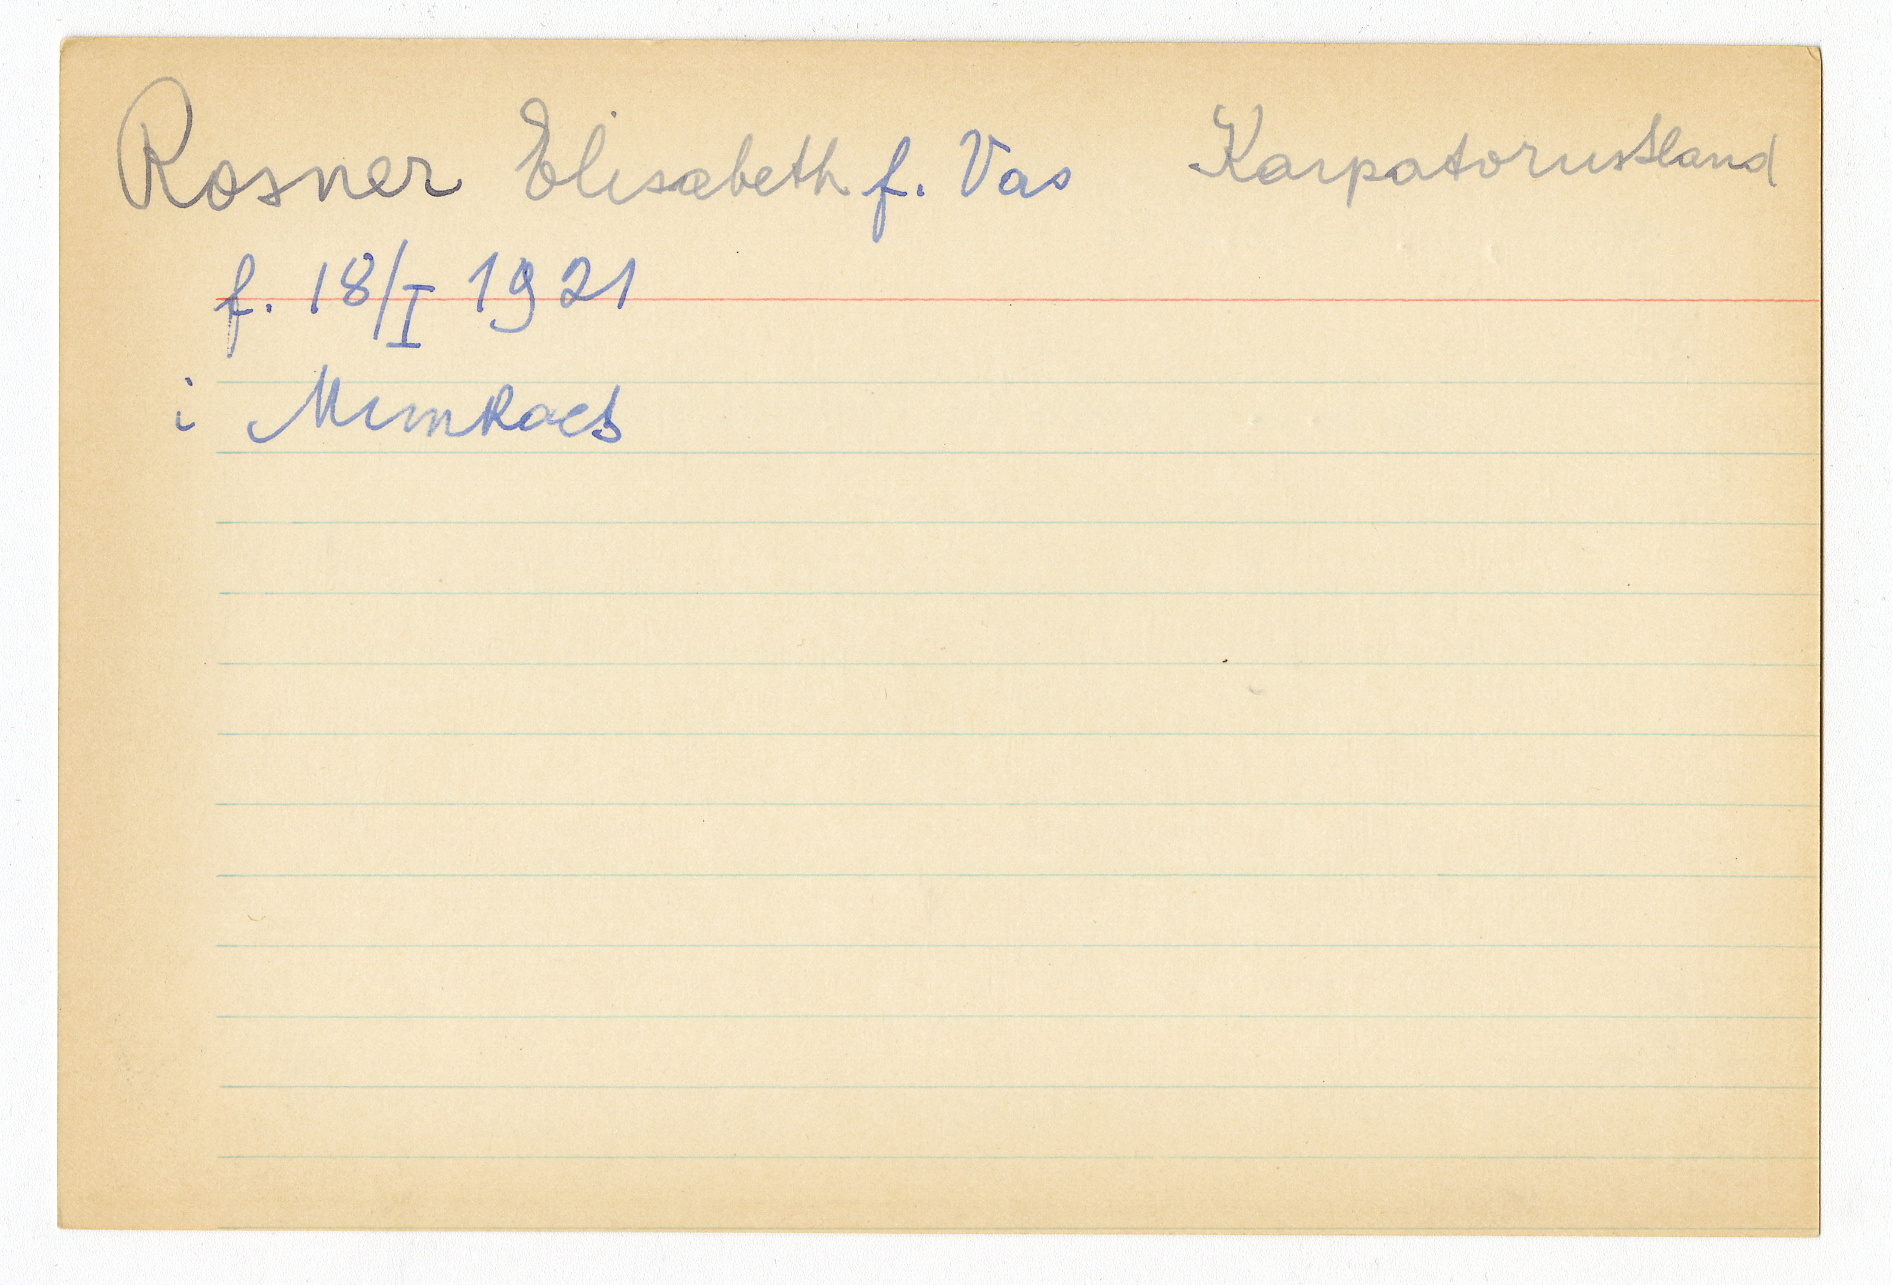 Rosner Elisabeth f. Vas Karpatorussland
f. 18/I 1921
i Munkacs